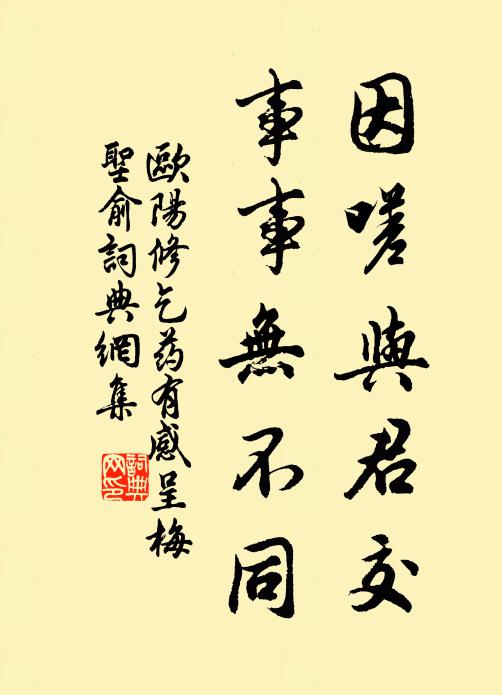 因嗟與君交
事事無不同
歐陽修乞药有感呈梅
聖俞詞典網集
詞典網印